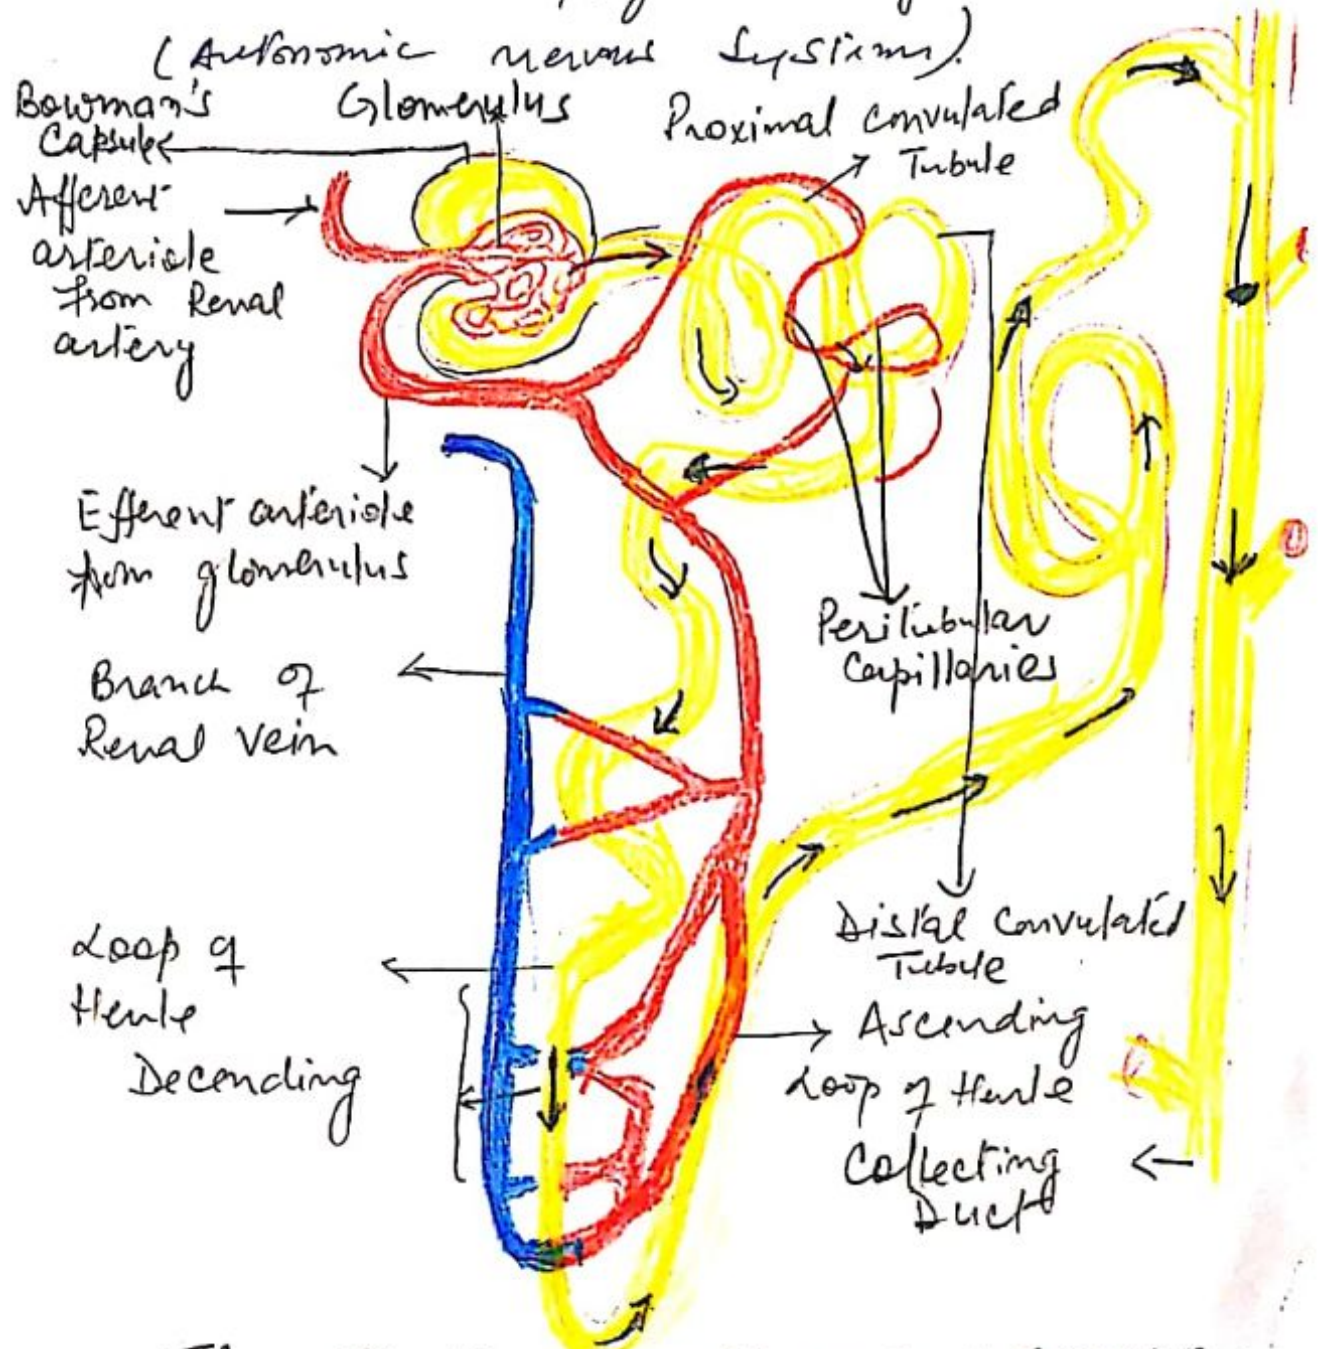 (Autonomic nervous Systems).
Bowman's
Capsule
Glomerulus
Proximal Convulated
Tubule
Afferent
arteriole
from Renal
artery
Efferent arteriole
from glomerulus
Peritubular
Capillaries
Branch of
Renal Vein
Loop of
Henle
Decending
Distal Convulated
Tubule
Ascending
Loop of Henle
Collecting
Duct